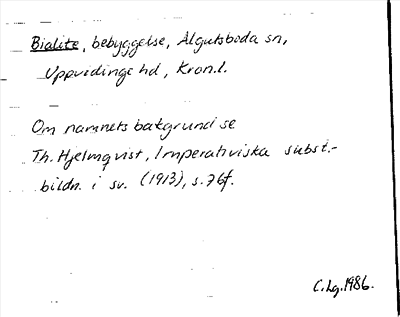 Bialite, bebyggelse, Älgutsboda sn,
Uppvidinge hd, Kron.l.
Om namnets bakgrund se
Th. Hjelmqvist, Imperativiska subst.-
bildn. i sv. (1913), s. 76f.
C.Lg. 1986.